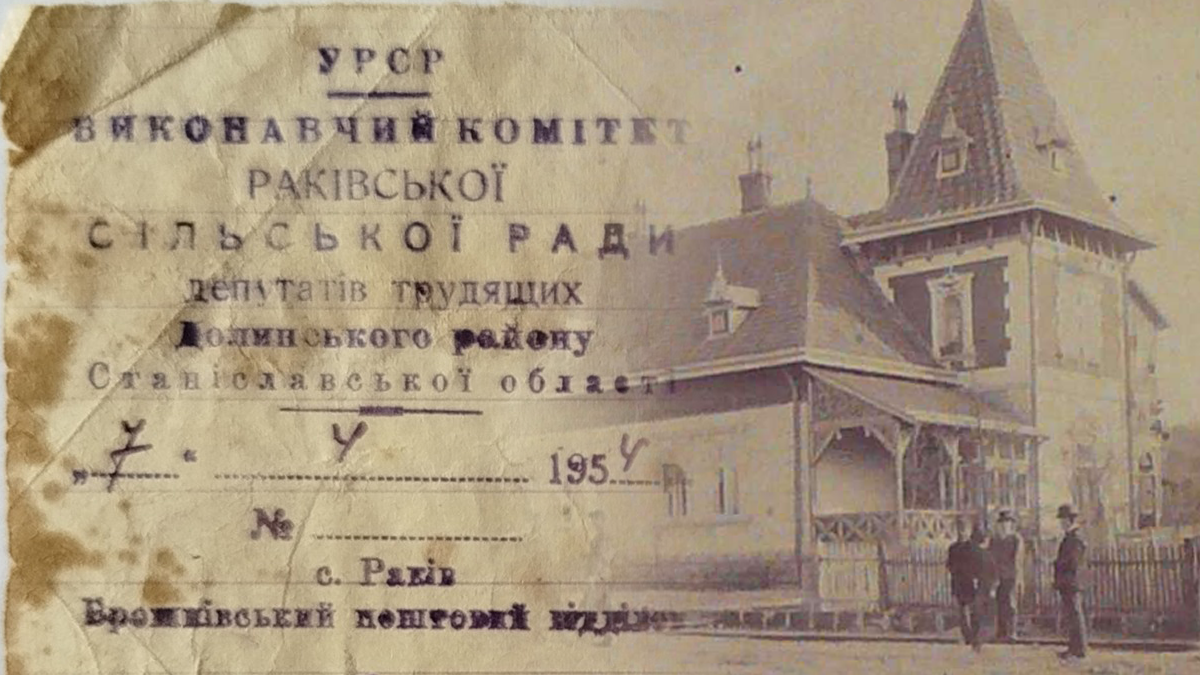 УРСР
ВИКОНАВЧИЙ КОМІТЕТ
РАКІВСЬКОЇ
СІЛЬСЬКОЇ РАДИ
депутатів трудящих
Долинського району
Станіславської області
„7“ 4 1954 р.
№
с. Раків
Брошнівський поштовий відділок